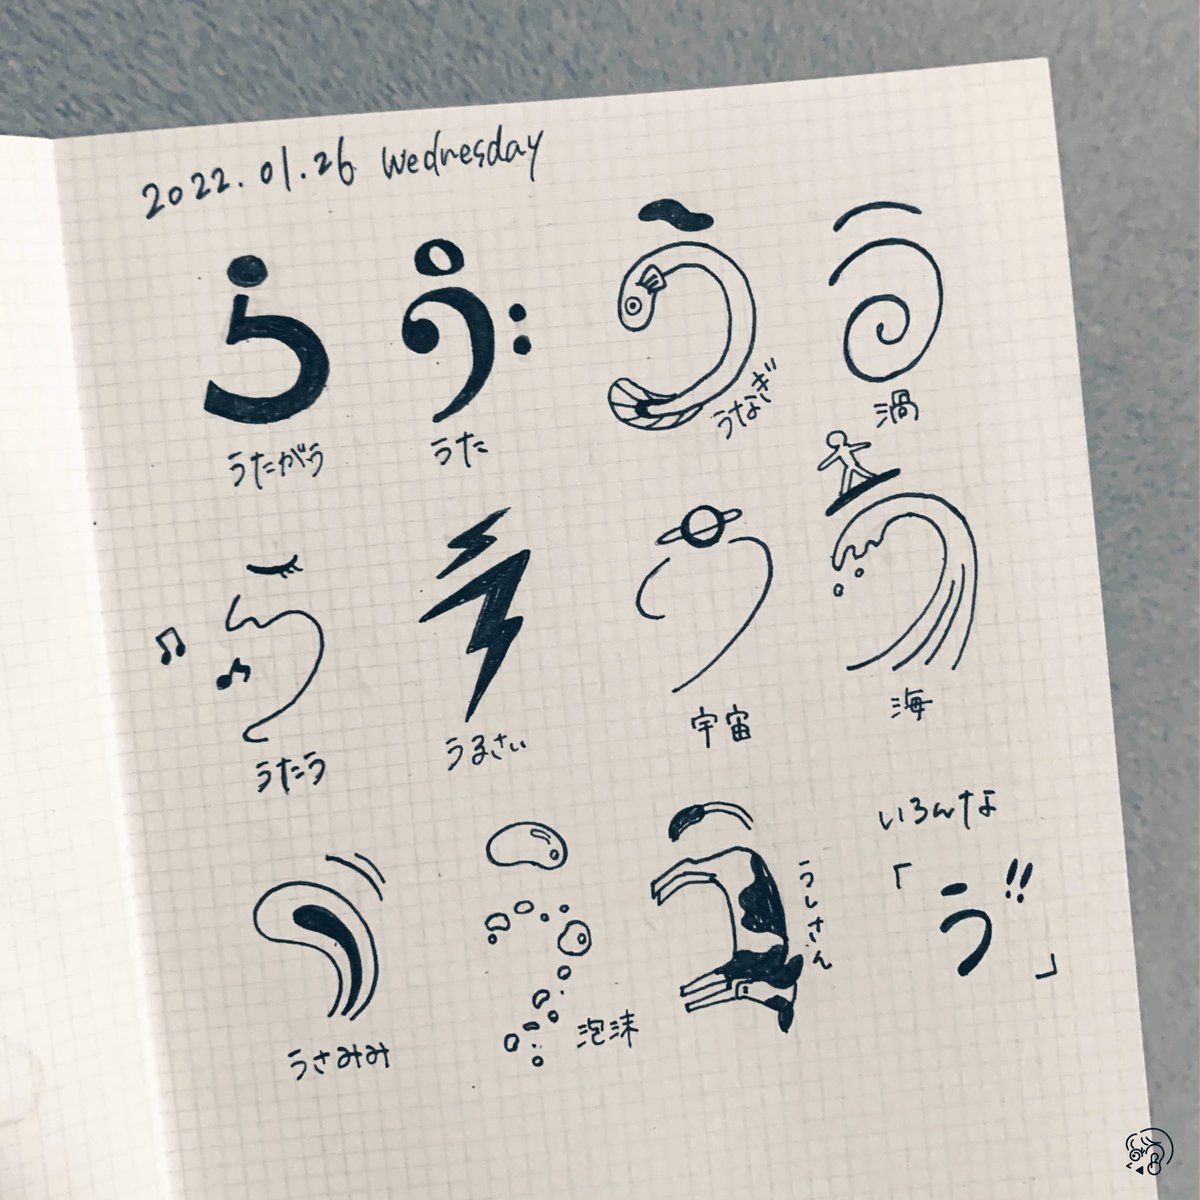 2022.01.26 Wednesday
うたがう
うた
うなぎ
渦
うたう
うるさい
宇宙
海
うさみみ
泡沫
うしさん
いろんな
「う!!」